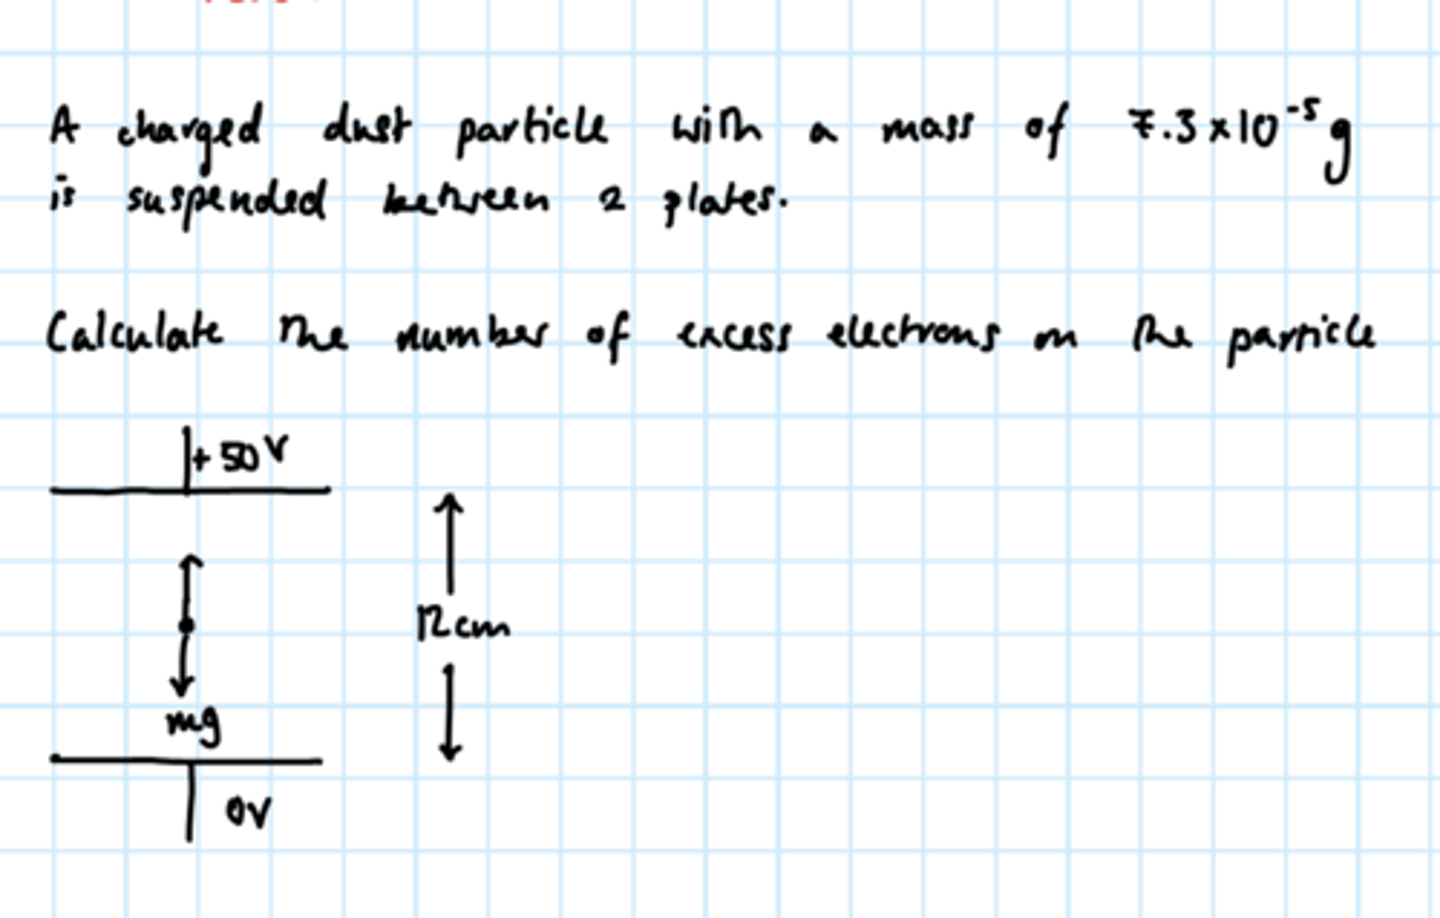 A charged dust particle with a mass of 7.3×10⁻⁵g
is suspended between 2 plates.
Calculate the number of excess electrons on the particle
+50V
12cm
mg
0V